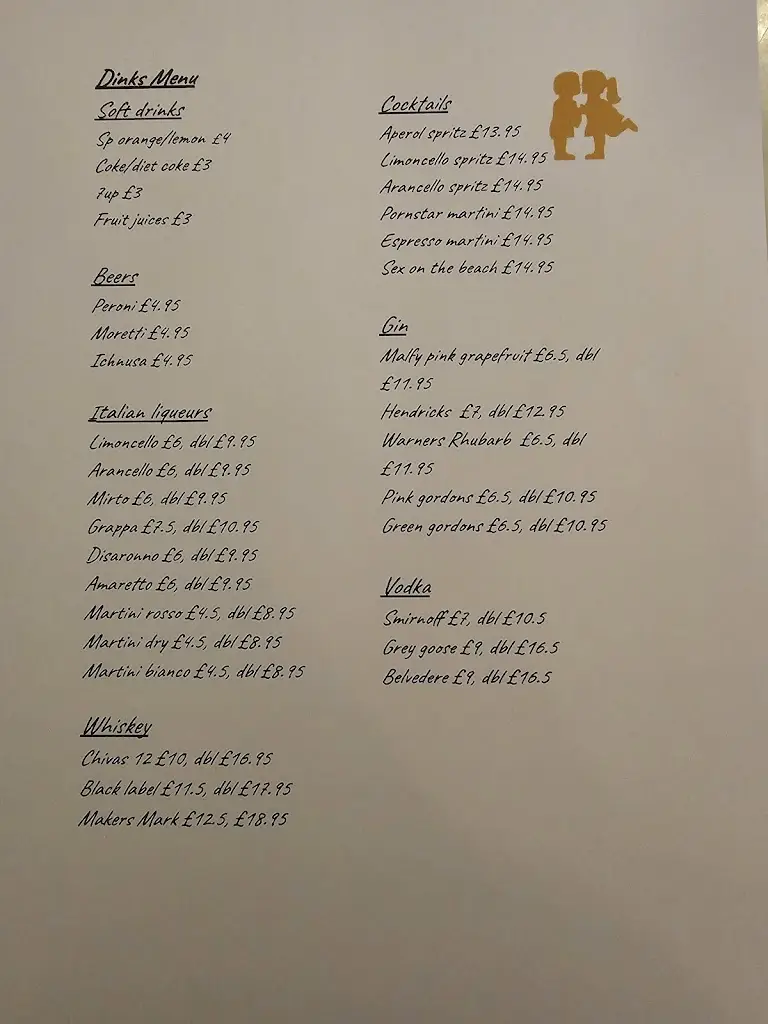 Dinks Menu
Soft drinks
Sp orange/lemon £4
Coke/diet coke £3
7up £3
Fruit juices £3
Beers
Peroni £4.95
Moretti £4.95
Ichnusa £4.95
Italian liqueurs
Limoncello £6, dbl £9.95
Arancello £6, dbl £9.95
Mirto £6, dbl £9.95
Grappa £7.5, dbl £10.95
Disaronno £6, dbl £9.95
Amaretto £6, dbl £9.95
Martini rosso £4.5, dbl £8.95
Martini dry £4.5, dbl £8.95
Martini bianco £4.5, dbl £8.95
Whiskey
Chivas 12 £10, dbl £16.95
Black label £11.5, dbl £17.95
Makers Mark £12.5, £18.95
Cocktails
Aperol spritz £13.95
Limoncello spritz £14.95
Arancello spritz £14.95
Pornstar martini £14.95
Espresso martini £14.95
Sex on the beach £14.95
Gin
Malfy pink grapefruit £6.5, dbl
£11.95
Hendricks £7, dbl £12.95
Warners Rhubarb £6.5, dbl
£11.95
Pink gordons £6.5, dbl £10.95
Green gordons £6.5, dbl £10.95
Vodka
Smirnoff £7, dbl £10.5
Grey goose £9, dbl £16.5
Belvedere £9, dbl £16.5